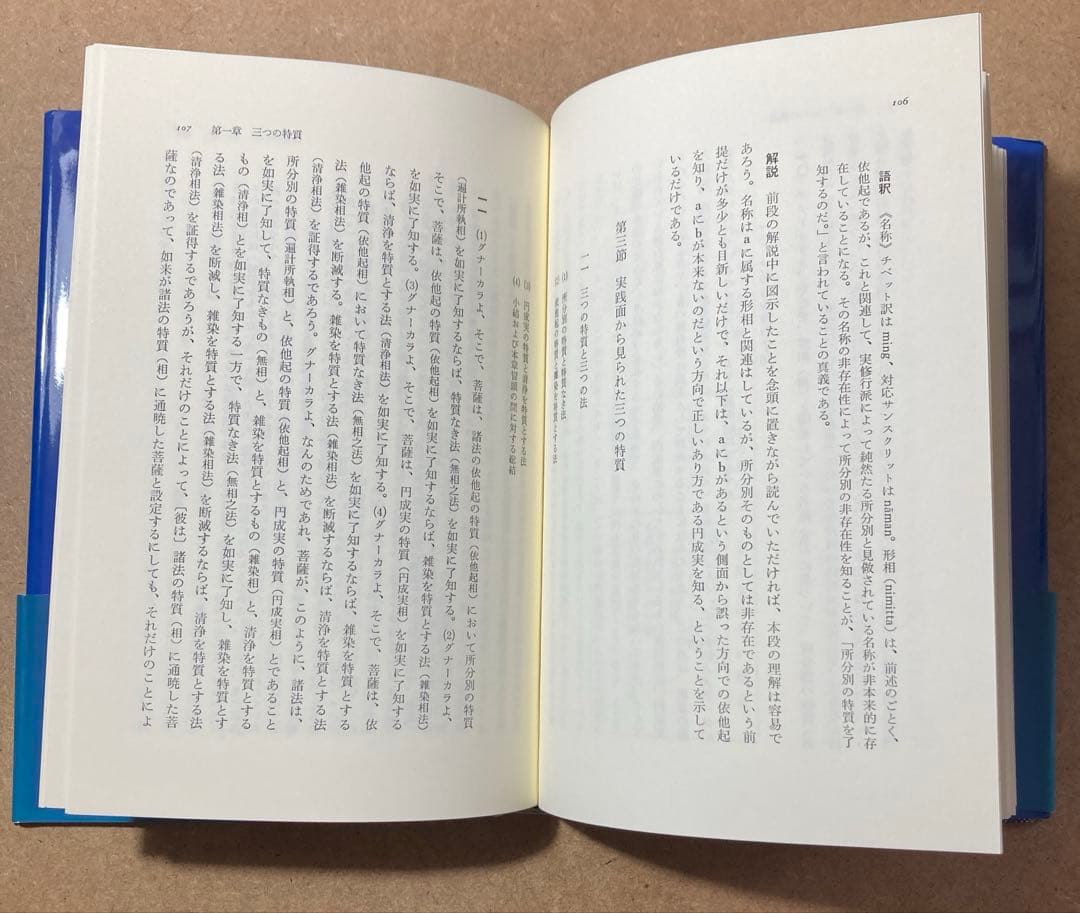 106
語釈　《名称》チベット訳は ming、対応サンスクリットは nāman。形相（nimitta）は、前述のごとく、
依他起であるが、これと関連して、実修行派によって純然たる所分別と見做されている名称が非本来的に存
在していることになる。その名称の非存在性によって所分別の非存在性を知ることが、「所分別の特質を了
知するのだ。」と言われていることの真義である。
解説　前段の解説中に図示したことを念頭に置きながら読んでいただければ、本段の理解は容易で
あろう。名称はaに属する形相と関連はしているが、所分別そのものとしては非存在であるという前
提だけが多少とも目新しいだけで、それ以下は、aにbがあるという側面から誤った方向での依他起
を知り、aにbが本来ないのだという方向で正しいあり方である円成実を知る、ということを示して
いるだけである。
第三節　実践面から見られた三つの特質
一一　三つの特質と三つの法
(1)　所分別の特質と特質なき法
(2)　依他起の特質と雑染を特質とする法
107　第一章　三つの特質
(3)　円成実の特質と清浄を特質とする法
(4)　小結および本章冒頭の問に対する総結
一一　(1)グナーカラよ、そこで、菩薩は、諸法の依他起の特質（依他起相）において所分別の特質
（遍計所執相）を如実に了知するならば、特質なき法（無相之法）を如実に了知する。(2)グナーカラよ、
そこで、菩薩は、依他起の特質（依他起相）を如実に了知するならば、雑染を特質とする法（雑染相法）
を如実に了知する。(3)グナーカラよ、そこで、菩薩は、円成実の特質（円成実相）を如実に了知する
ならば、清浄を特質とする法（清浄相法）を如実に了知する。(4)グナーカラよ、そこで、菩薩は、依
他起の特質（依他起相）において特質なき法（無相之法）を如実に了知するならば、雑染を特質とする
法（雑染相法）を断滅する。雑染を特質とする法（雑染相法）を断滅するならば、清浄を特質とする法
（清浄相法）を証得するであろう。グナーカラよ、なんのためであれ、菩薩が、このように、諸法は、
所分別の特質（遍計所執相）と、依他起の特質（依他起相）と、円成実の特質（円成実相）とであること
を如実に了知して、特質なきもの（無相）と、雑染を特質とするもの（雑染相）と、清浄を特質とする
もの（清浄相）とを如実に了知する一方で、特質なき法（無相之法）を如実に了知し、雑染を特質とす
る法（雑染相法）を断滅し、雑染を特質とする法（雑染相法）を断滅するならば、清浄を特質とする法
（清浄相法）を証得するであろうが、それだけのことによって、〔彼は〕諸法の特質（相）に通暁した菩
薩なのであって、如来が諸法の特質（相）に通暁した菩薩と設定するにしても、それだけのことによ